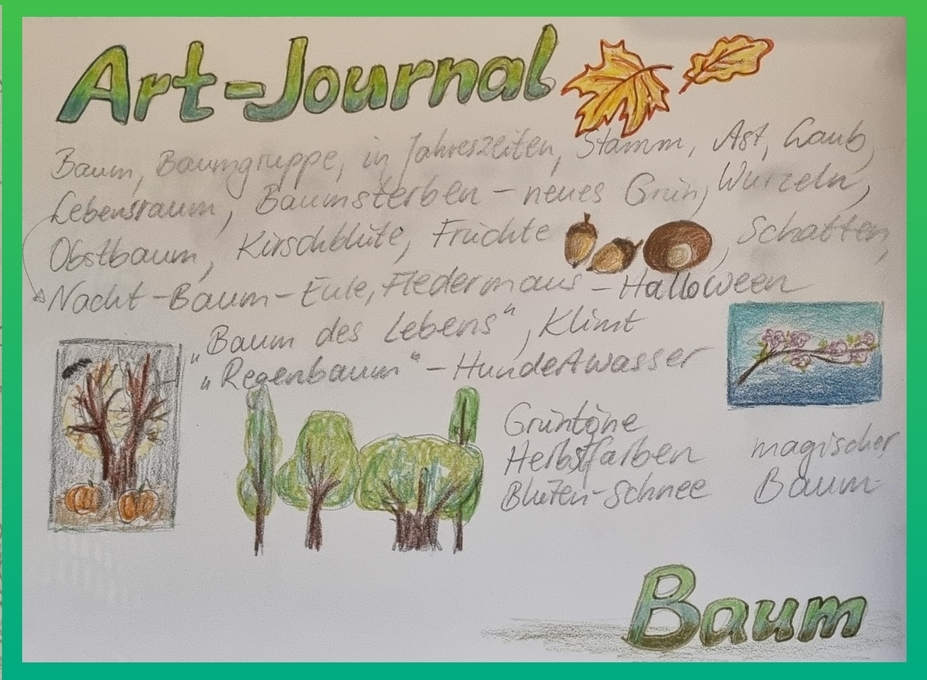 Art-Journal
Baum, Baumgruppe, in Jahreszeiten, Stamm, Ast, Laub,
Lebensraum, Baumsterben - neues Grün, Wurzeln,
Obstbaum, Kirschblüte, Früchte , Schatten,
Nacht-Baum-Eule, Fledermaus - Halloween
"Baum des Lebens", Klimt
"Regenbaum" - Hundertwasser
Grüntöne
Herbstfarben
Blüten-Schnee
magischer
Baum
Baum